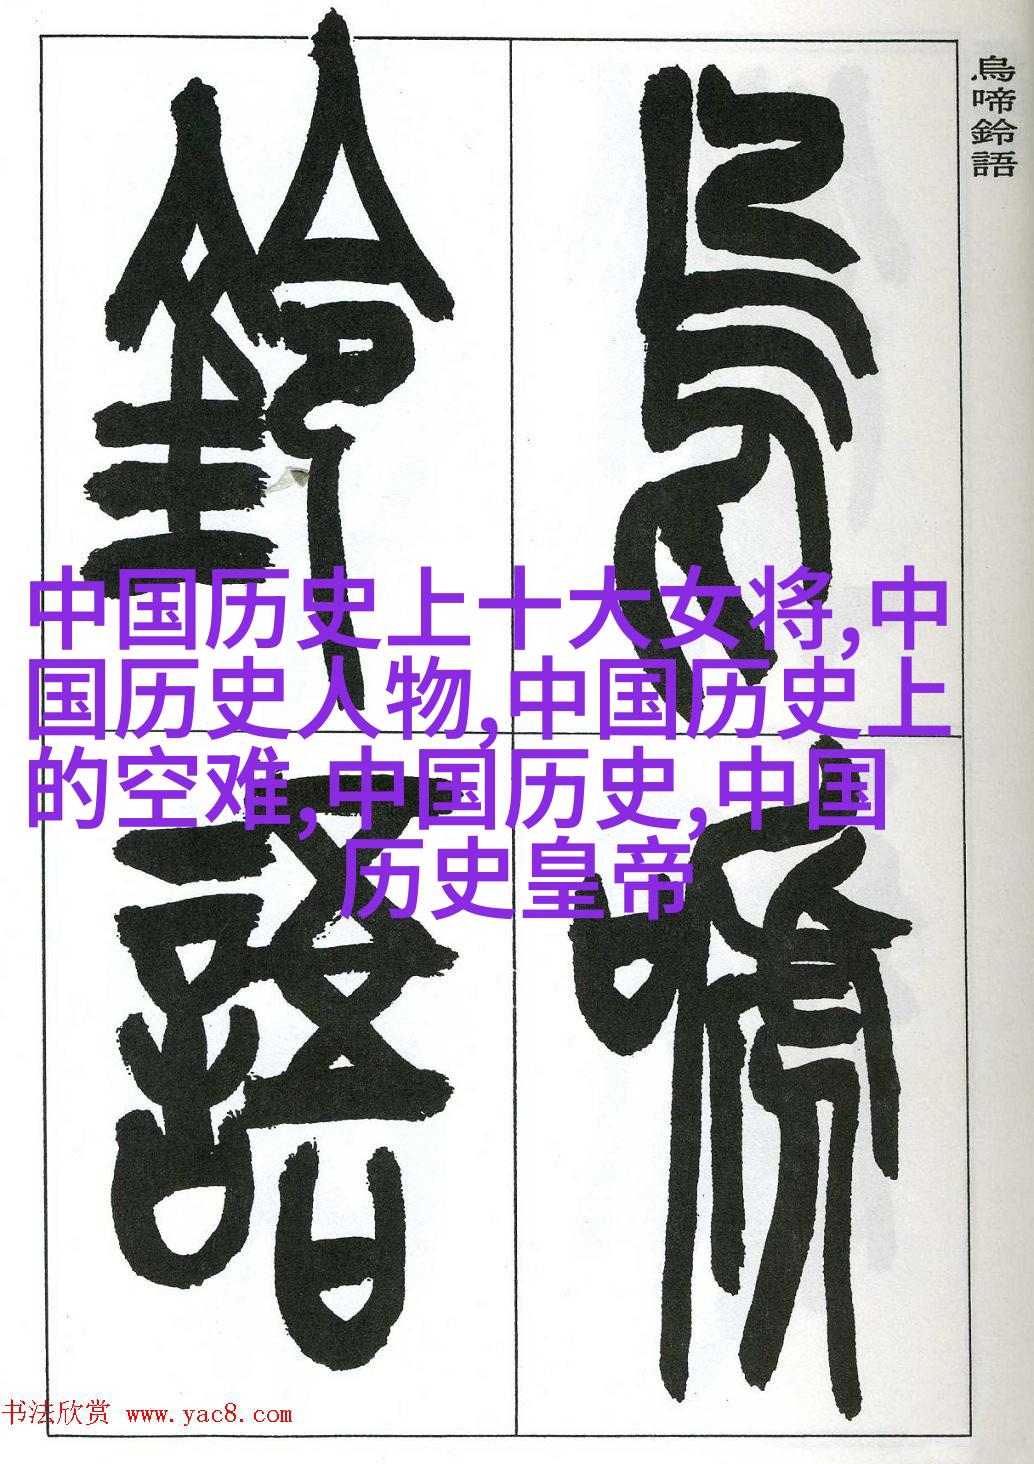 鳥啼鈴語
鳥啼
鈴語
中国历史上十大女将,中
国历史人物,中国历史上
的空难,中国历史,中国
历史皇帝
书法欣赏 www.yac8.com